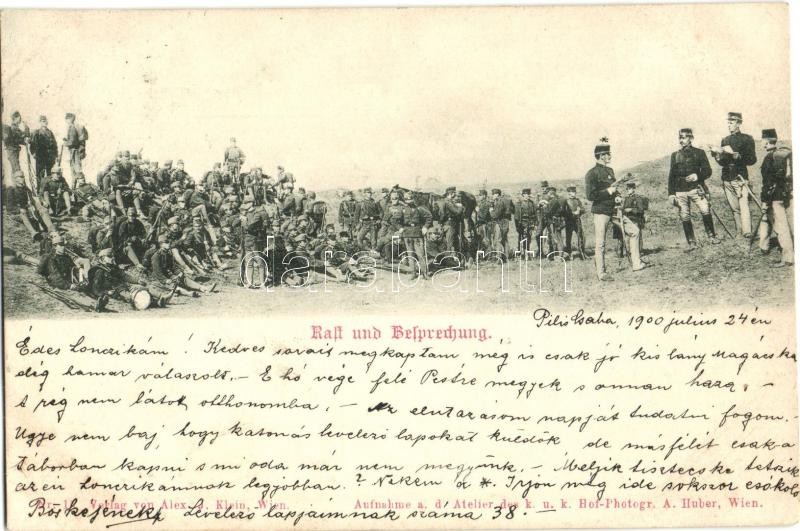 darabanth.com
Rast und Besprechung.
PilisCsaba, 1900 július 24én
Édes Lonczikám! Kedves sorait megkaptam még is csak jó kis lány Magácska
hamar válaszolt. - E hó vége felé Pestre megyek s onnan haza, -
A rég nem látott otthonomba, - Az elutazásom napját tudatni fogom. -
Ugye nem baj, hogy katonás levelező lapokat küldök de másfélét csak a
táborban kapni s mi oda már nem megyünk. - Melyik tisztecske tetszik
az én Lonczikámnak legjobban? Nekem a *. Irjon még ide sokszor csókolja
Verlag von Alex. J. Klein, Wien. Aufnahme a. d. Atelier des k. u. k. Hof-Photogr. A. Huber, Wien.
Levelező lapjaimnak száma 38. -